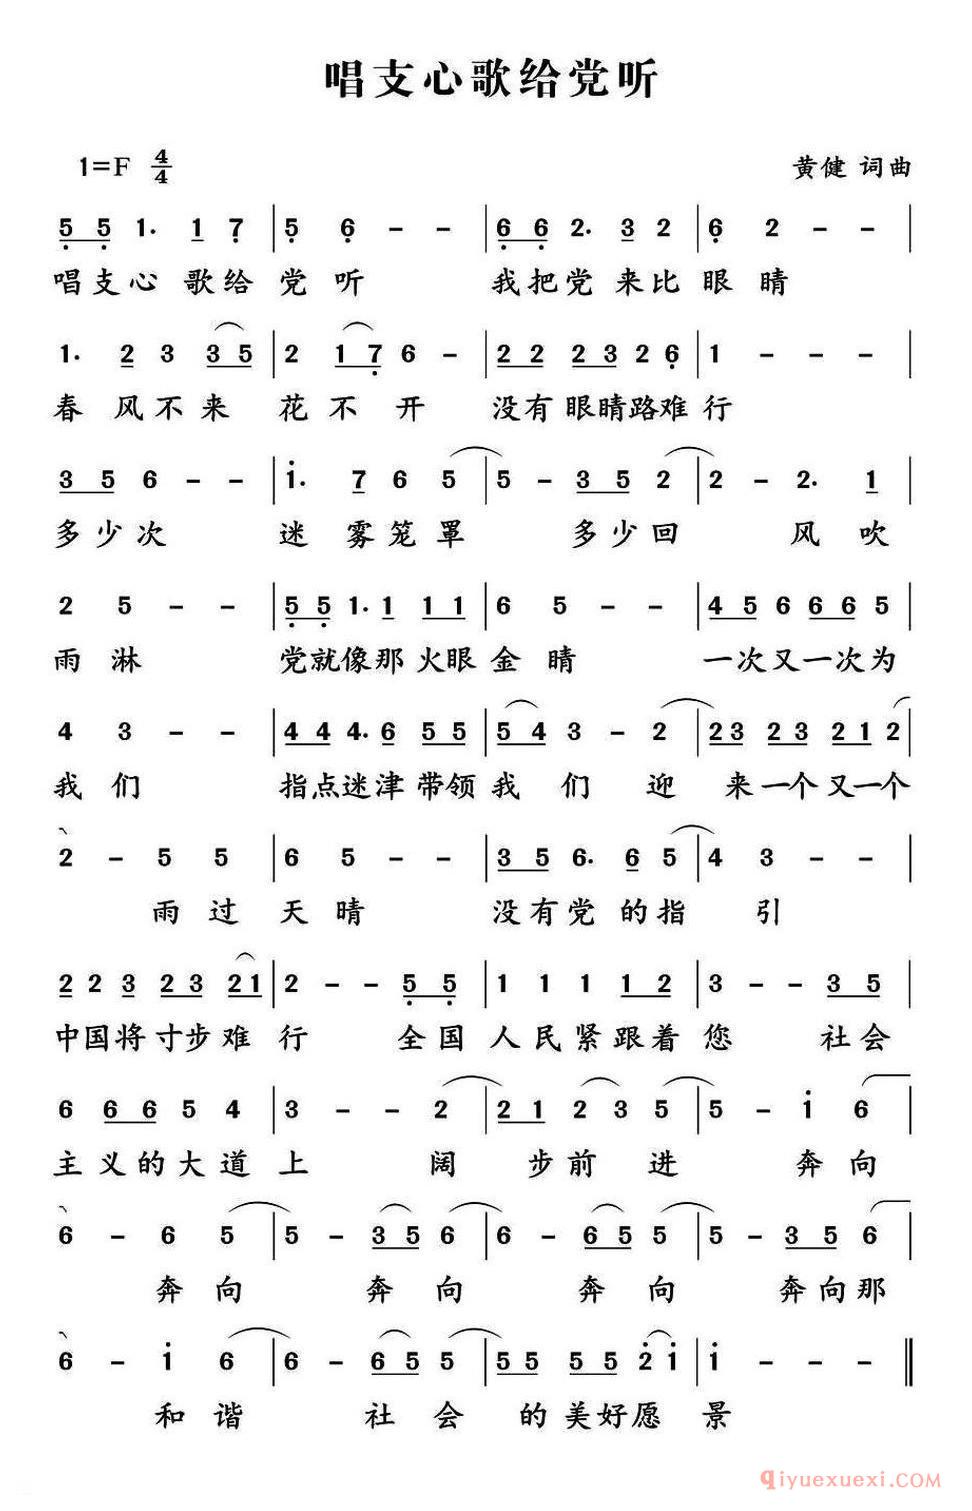 唱支心歌给党听
1=F 4/4 黄健 词曲
5 5 1. 1 7 | 5 6 - - | 6 6 2. 3 2 | 6 2 - - |
唱支心 歌给 党 听 我把党 来比 眼 睛
1. 2 3 3 5 | 2 1 7 6 - | 2 2 2 3 2 6 | 1 - - - |
春 风不 来 花 不 开 没有 眼睛路难 行
3 5 6 - - | 1. 7 6 5 | 5 - 3 5 2 | 2 - 2. 1 |
多少次 迷 雾笼 罩 多少回 风 吹
2 5 - - | 5 5 1. 1 1 1 | 6 5 - - | 4 5 6 6 6 5 |
雨 淋 党就像那 火眼 金 睛 一次又一次为
4 3 - - | 4 4 4. 6 5 5 | 5 4 3 - 2 | 2 3 2 3 2 1 2 |
我们 指点迷津 带领 我 们 迎 来 一个 又一个
2 - 5 5 | 6 5 - - | 3 5 6. 6 5 | 4 3 - - |
雨 过 天 晴 没有党 的指 引
2 2 3 2 3 2 1 | 2 - - 5 5 | 1 1 1 1 2 | 3 - - 3 5 |
中国将 寸步 难 行 全国 人 民 紧 跟着 您 社会
6 6 6 5 4 | 3 - - 2 | 2 1 2 3 5 | 5 - 1 6 |
主 义的 大 道 上 阔 步 前 进 奔 向
6 - 6 5 | 5 - 3 5 6 | 6 - 6 5 5 | 5 - 3 5 6 |
奔 向 奔 向 奔 向 奔向那
6 - 1 6 | 6 - 6 5 5 | 5 5 5 5 2 1 | 1 - - - ‖
和 谐 社 会 的 美好愿 景
qiyuexuexi.COM